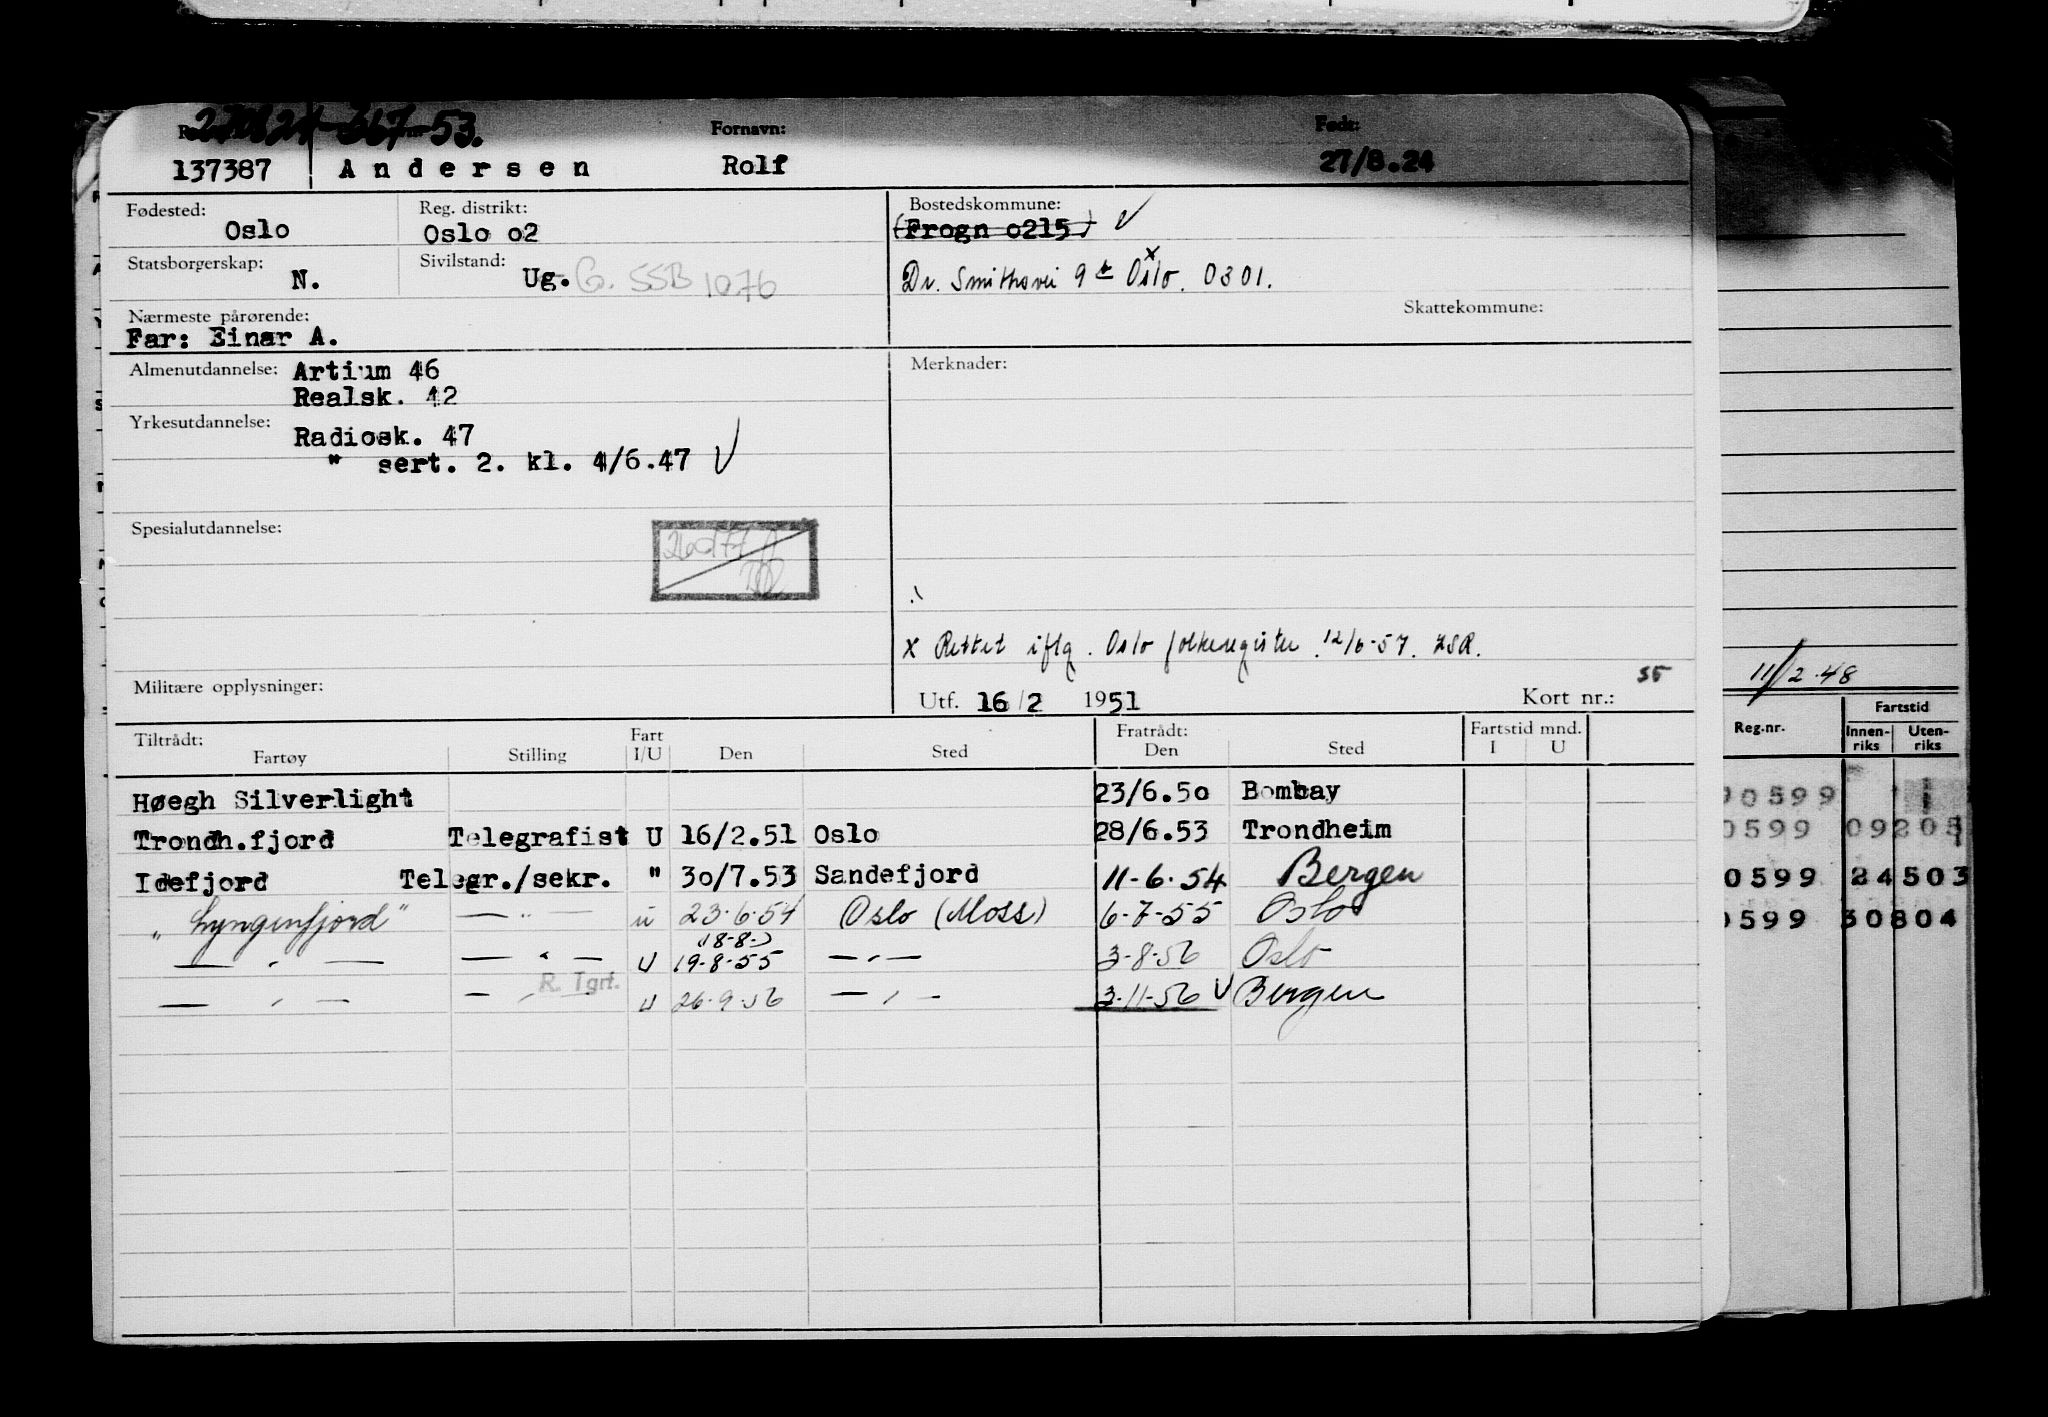 270824-367-53.
Fornavn: Født:
137387 Andersen Rolf 27/8.24
Fødested: Reg. distrikt: Bostedskommune:
Oslo Oslo o2 (Frogn o215) V
Statsborgerskap: Sivilstand:
N. Ug. G. SSB 1076 Dr. Smithsvei 9 b Oslo x. 0301.
Nærmeste pårørende: Skattekommune:
Far: Einar A.
Almenutdannelse: Artium 46 Merknader:
Realsk. 42
Yrkesutdannelse:
Radiosk. 47
" sert. 2. kl. 4/6.47 V
Spesialutdannelse:
x Rettet iflg. Oslo folkeregister 12/6-57. ZSR.
Militære opplysninger: 55
Utf. 16/2 1951 Kort nr.:
Tiltrådt: Fart Fratrådt: Fartstid mnd.
Fartøy Stilling I/U Den Sted Den Sted I U
Høegh Silverlight 23/6.5o Bombay
Trondh.fjord Telegrafist U 16/2.51 Oslo 28/6.53 Trondheim
Idefjord Telegr./sekr. " 3o/7.53 Sandefjord 11-6.54 Bergen
"Lyngenfjord" — " — u 23.6.54 Oslo (Moss) 6-7-55 Oslo
(18-8-)
— " — — " — U 19-8-55 — " — 3-8-56 Oslo
R. Tgrf.
— " — — " — U 26.9.56 — " — 3-11-56 V Bergen
11/2.48
Fartstid
Reg.nr. Innen-riks Uten-riks
90599
0599 09205
0599 24503
0599 30804